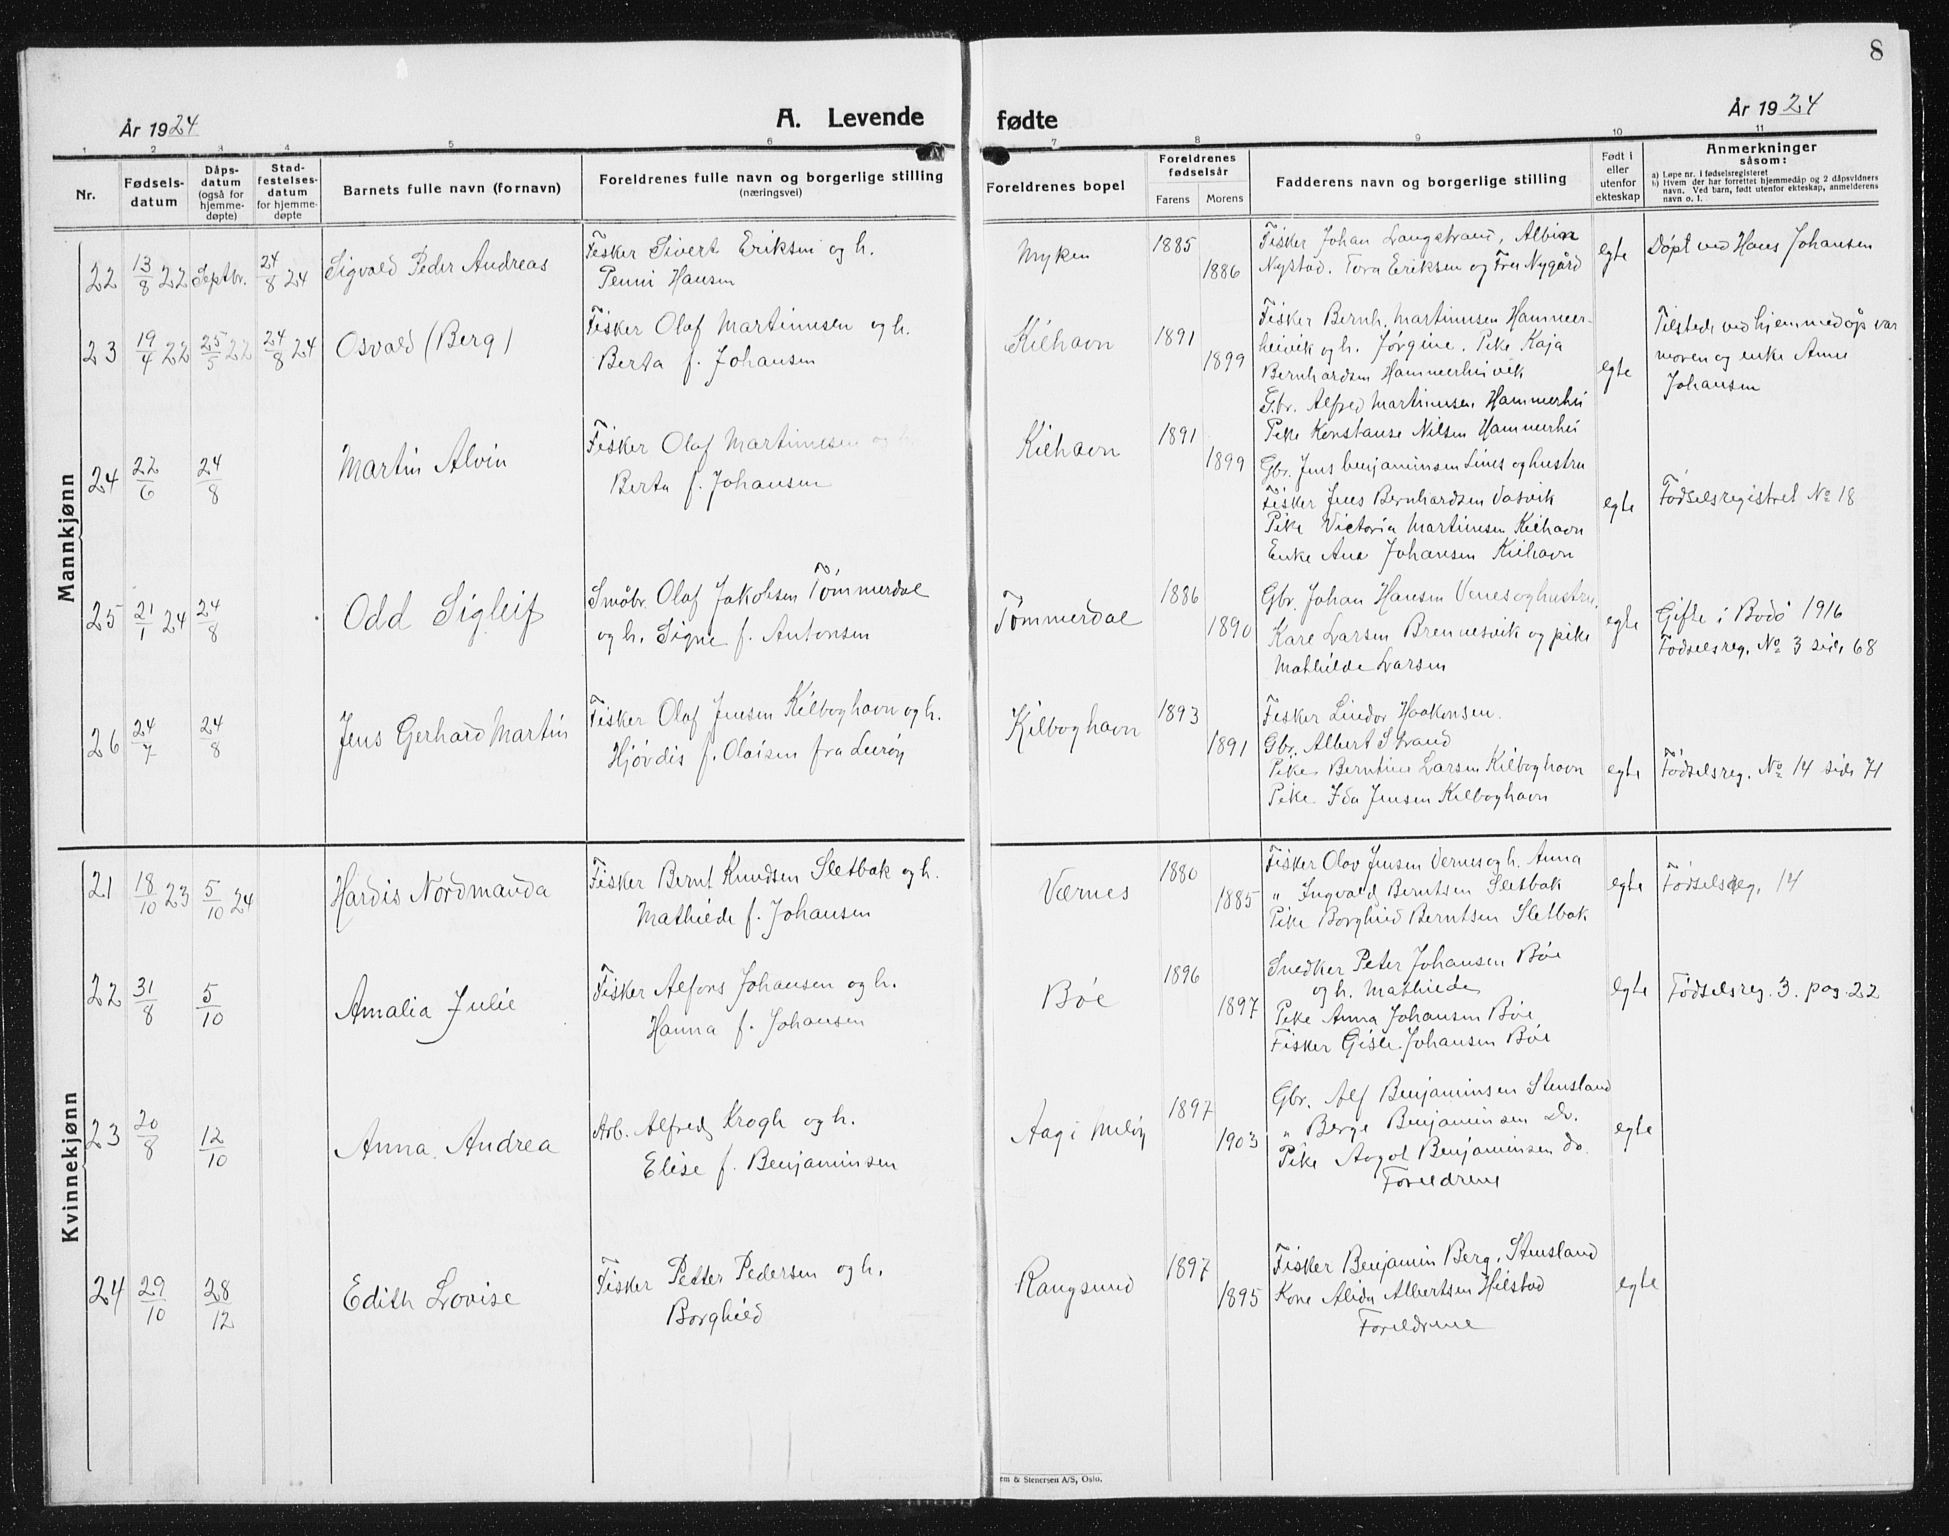 8
År 1924
A. Levende fødte
År 1924
1 2 3 4 5 6 7 8 9 10 11
Nr.
Fødsels-
datum
Dåps-
datum
(også for
hjemme-
døpte)
Stad-
festelses-
datum
for hjemme-
døpte
Barnets fulle navn (fornavn)
Foreldrenes fulle navn og borgerlige stilling
(næringsvei)
Foreldrenes bopel
Foreldrenes
fødselsår
Farens Morens
Fadderens navn og borgerlige stilling
Født i
eller
utenfor
ekteskap
Anmerkninger
såsom:
a) Løpe nr. i fødselsregisteret
b) Hvem der har forrettet hjemmedåp og 2 dåpsvidners
navn. Ved barn, født utenfor ekteskap, anmelderens
navn o. l.
Mannkjønn
22 13/8 22 Septbr. 24/8 24
Sigvald Peder Andreas
Fisker Sivert Eriksen og h.
Penni Hansen
Myken
1885
1886
Fisker Johan Langstrand, Albin
Nystad. Tora Eriksen og Fru Nygård
egte
Døpt ved Hans Johansen
23 19/4 22 25/5 22 24/8 24
Osvald (Berg)
Fisker Olaf Martinusen og h.
Berta f. Johansen
Kilhavn
1891
1899
Fisker Bernh. Martinusen Hammer-
heivik og h. Jørgine. Pike Kaja
Bernhardsen Hammerheivik
Gbr. Alfred Martinusen Hammerhei
egte
Tilstede ved hjemmedåp var
moren og enke Anne
Johansen
24 22/6 24/8
Martin Alvin
Fisker Olaf Martinusen og h
Berta f. Johansen
Kilhavn
1891
1899
Pike Konstanse Nilsen Hammerhei
Gbr. Jens Benjaminsen Lines og hustru
Fisker Jens Bernhardsen Vasvik
Pike Victoria Martinusen Kilhavn
Enke Ane Johansen Kilhavn
egte
Fødselsregistret No 18
25 21/1 24 24/8
Odd Sigleif
Småbr. Olaf Jakobsen Tømmerdal
og h. Signe f. Antonsen
Tømmerdal
1886
1890
Gbr. Johan Hansen Venes og hustru,
Kare Larsen Brennesvik og pike
Mathilde Larsen
egte
Gifte i Bodö 1916
Fødselsreg. No 3 side 68
26 24/7 24/8
Jens Gerhard Martin
Fisker Olaf Jensen Kilboghavn og h.
Hjørdis f. Olaisen fra Lurøy
Kilboghavn
1893
1891
Fisker Lindor Haakonsen.
Gbr. Albert Strand
Pike Berntine Larsen Kilboghavn
Pike Ida Jensen Kilboghavn
egte
Fødselsreg. No 14 side 71
Kvinnekjønn
21 18/10 23 5/10 24
Hardis Nordmanda
Fisker Bernt Knudsen Sletbak og h.
Mathilde f. Johansen
Værnes
1880
1885
Fisker Olav Jensen Vernes og h. Anna
" Ingvald Berntsen Sletbak
Pike Borghild Berntsen Sletbak
egte
Fødselsreg. 14
22 31/8 5/10
Amalia Julie
Fisker Alfons Johansen og h.
Hanna f. Johansen
Bøe
1896
1897
Snedker Peter Johansen Bøe
og h. Mathilde
Pike Anna Johansen Bøe
Fisker Gisle Johansen Bøe
egte
Fødselsreg. 3. pag. 22
23 20/8 12/10
Anna Andrea
Arb. Alfred Krogh og h.
Elise f. Benjaminsen
Aag i Meløy
1897
1903
Gbr. Alf Benjaminsen Stensland
" Berge Benjaminsen Do.
Pike Aagot Benjaminsen do.
Foreldrene
egte
24 29/10 28/12
Edith Lovise
Fisker Petter Pedersen og h.
Borghild
Rangsund
1897
1895
Fisker Benjamin Berg, Stensland
Kone Alida Albertsen Hilstad
Foreldrene
egte
em & Stenersen A/S, Oslo.